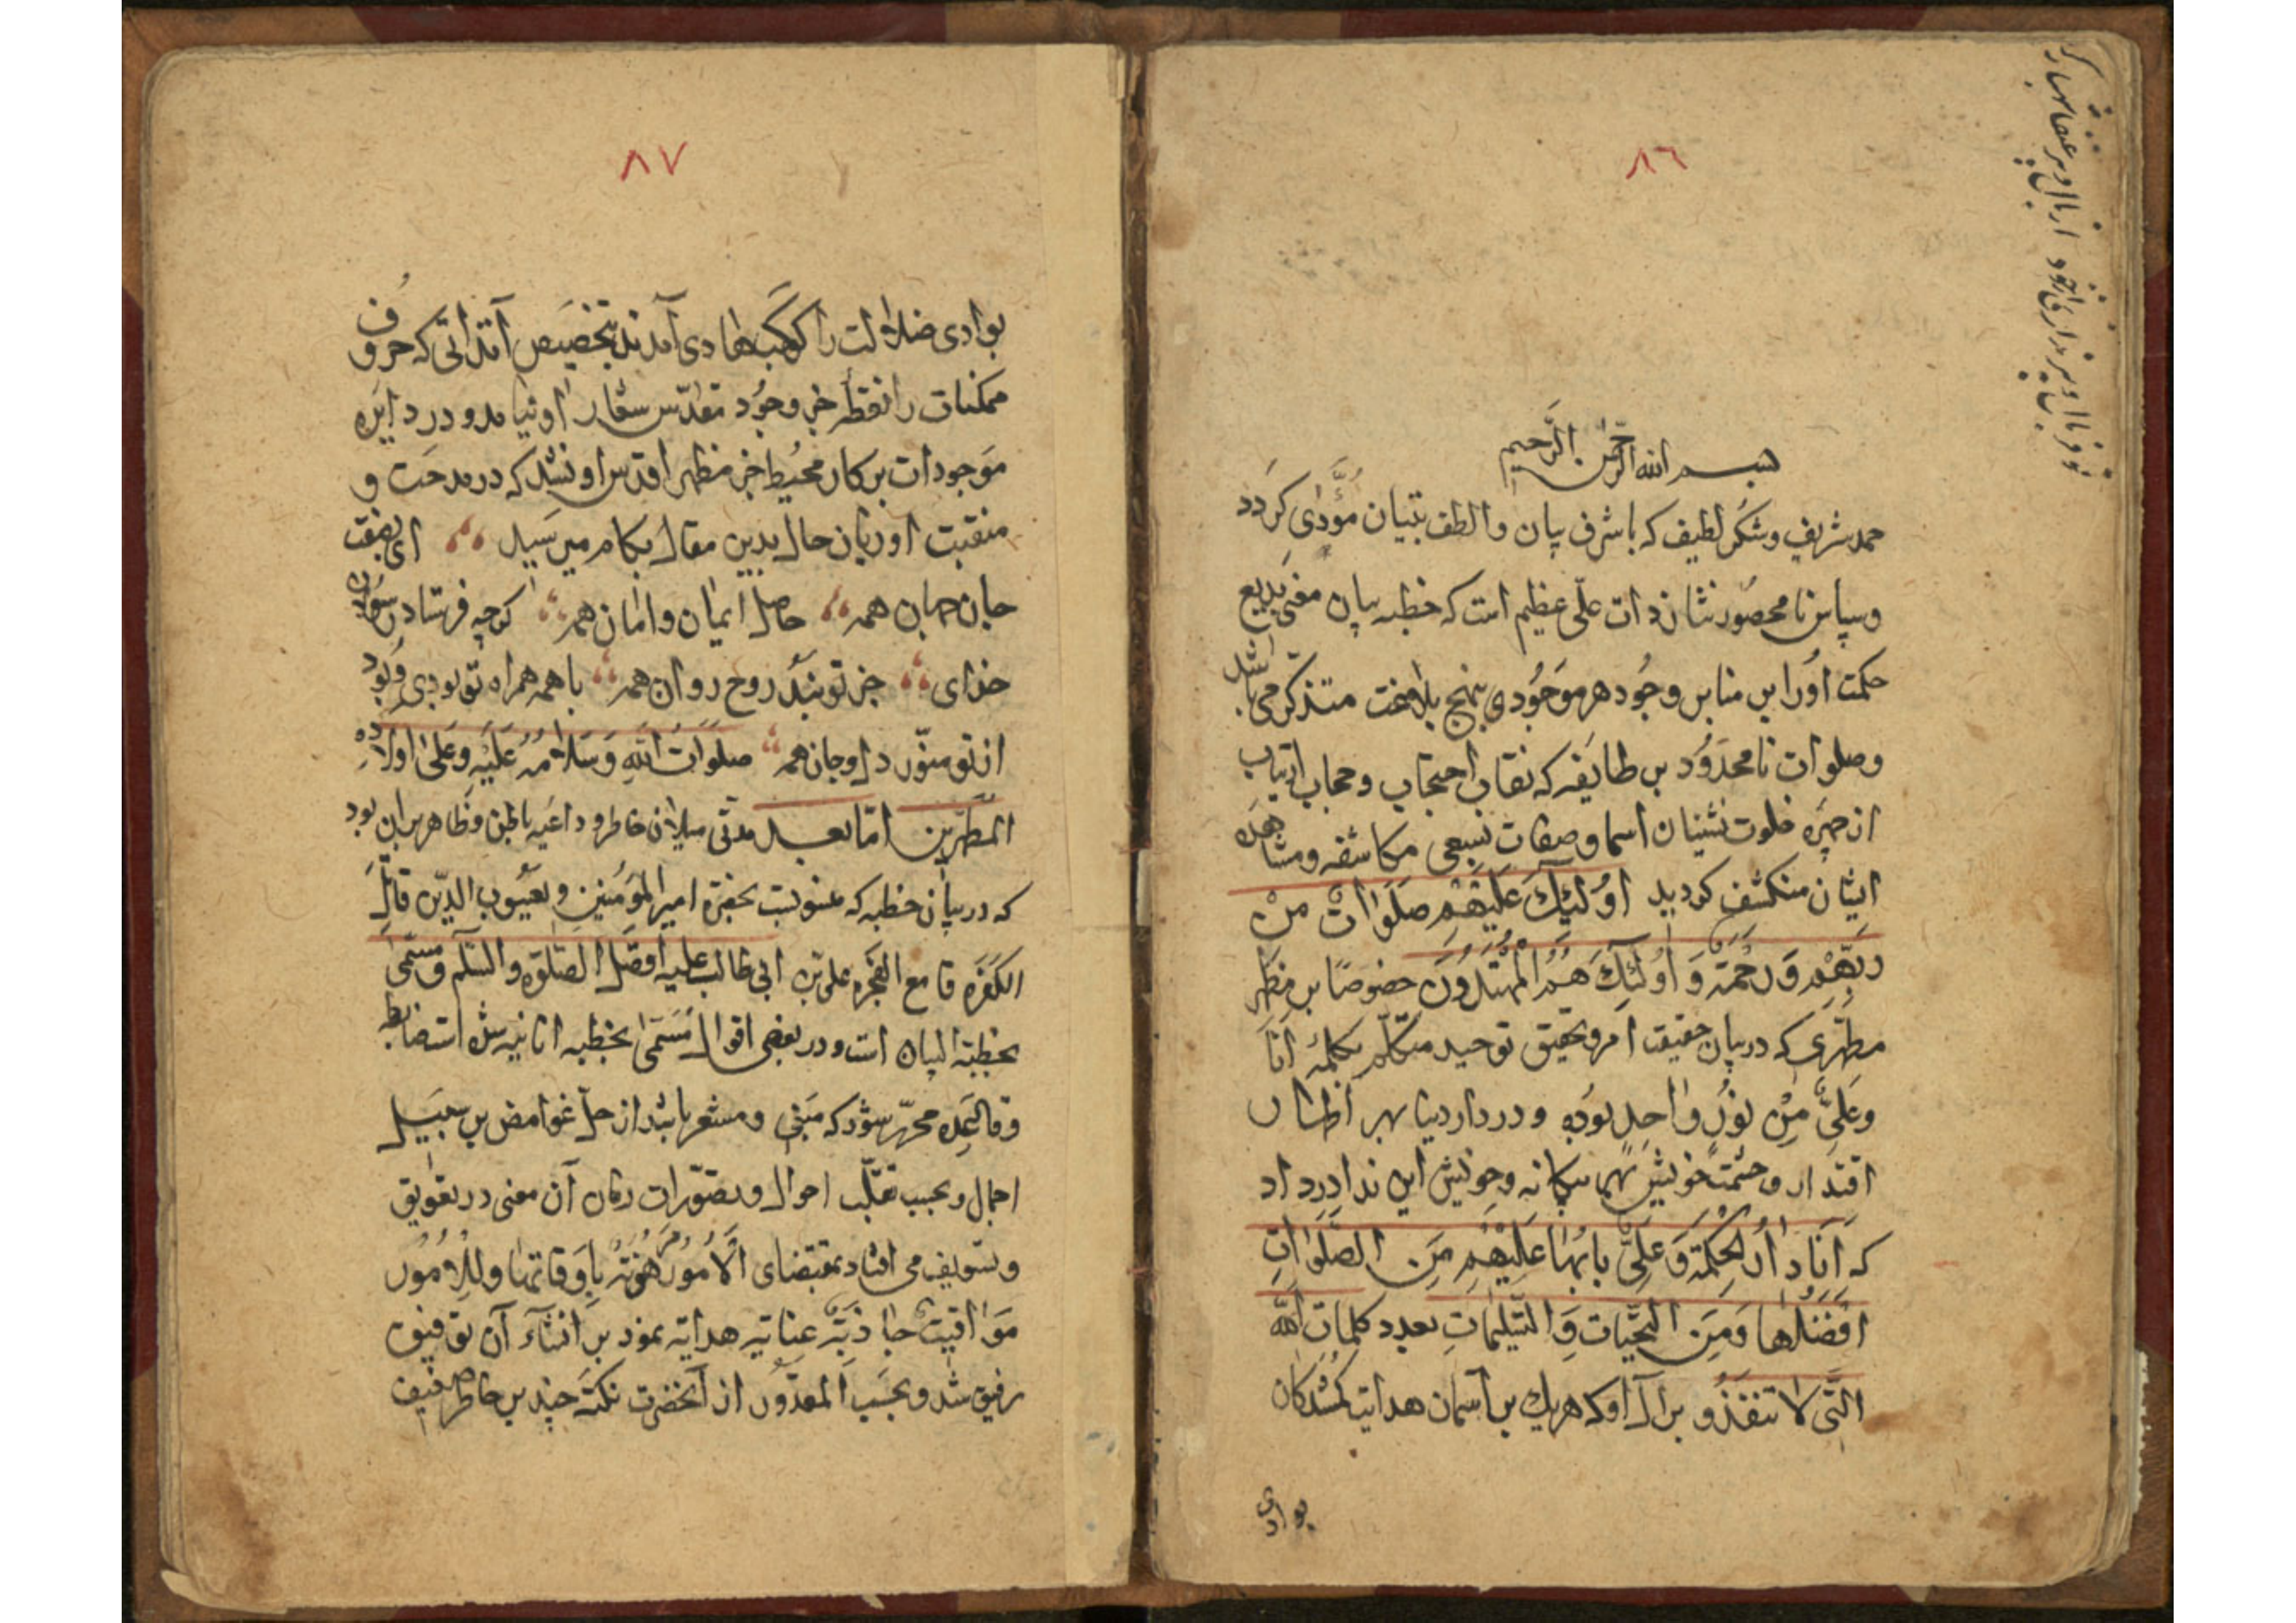 ٨٦
بسم الله الرحمن الرحیم
حمد شریف و شکر لطیف که با شرف بیان و الطف تبیان مؤدّی کردد
و سپاس نا محصور نثار ذات علّی عظیم است که خطبه بیان معنی بدیع
حکمت او را بر منابر وجود هر موجودی بنهج بلاغت متذکّر می باشد
و صلوات نا محدود بر طایفه که نقاب احتجاب و حجاب ارتیاب
از چهره خلوت نشینان اسما و صفات بسعی مکاشفه و مشاهده
ایشان منکشف کردید اُولئِكَ عَلَیْهِمْ صَلَوَاتٌ مِنْ
رَبِّهِمْ وَ رَحْمَةٌ وَ اُولئِكَ هُمُ الْمُهْتَدُونَ خصوصًا بر مظهر
مطهّری که در بیان حقیقت امر و تحقیق توحید متکلّم بکلمۀ اَنَا
وَعَلِیٌّ مِنْ نُورٍ وَاحِدٍ بوده و در دار دنیا بهر اظهار
اقتدار و حشمت خویش بهر بیکانه و خویش این ندا در داد
که اَنَا دَارُ الْحِکْمَةِ وَ عَلِیٌّ بَابُهَا عَلَیْهِمْ مِنَ الصَّلَوَاتِ
اَفْضَلُهَا وَ مِنَ التَّحِیَّاتِ وَ التَّسْلِیمَاتِ بعدد کلمات الله
الَّتِی لا تَنْفَذُ و بر آل او که هر یك بر آسمان هدایت کمشدکان
بوادی
٨٧
بوادی ضلالت را کوکب هادی آمدند بتخصیص آن ذاتی که حروف
ممکنات را نقطه جز وجود مقدّس شعار او نیامد و در دایره
موجودات پرکار محیط جز مظهر اقدس او نشد که در مدحت و
منقبت او زبان حال بدین مقال بکام میرسید ای بصفت
جان جهان همه حاصل ایمان و امان همه کرچه فرستاد رسولان
خدای جز تو نبد روح روان همه با همه همراه تو بودی و بود
از تو منوّر دل و جان همه صلوات الله و سلامه علیه و علی اولاده
المطهّرین امّا بعد مدتی میلان خاطر و داعیه باطن و ظاهر بر این بود
که در بیان خطبه که منسوبست بحضرة امیر المؤمنین و یعسوب الدّین قاتل
الکفره قامع الفجره علی بن ابی طالب علیه افضل الصّلوة و السّلم و مسمّی
بخطبة البیان است و در بعضی اقوال مسمّی بخطبه انانیه شده است ضابطه
و قاعده محرّر شود که منبی و مشعر باشد از حلّ غوامض بر سبیل
اجمال و بحسب تقلّب احوال و تصوّرات زمان آن معنی در تعویق
و تسویف می افتاد بمقتضای اَلْاُمُورُ مَرْهُونَةٌ بِاَوْقَاتِهَا وَ لِلْاُمُورِ
مَوَاقِیتُ جاذبه عنایتِ هدایه نمود بر انشآء آن توفیق
رفیق شد و بحسب المقدور از آنحضرت نکتۀ چند بر خاطر ضعیف